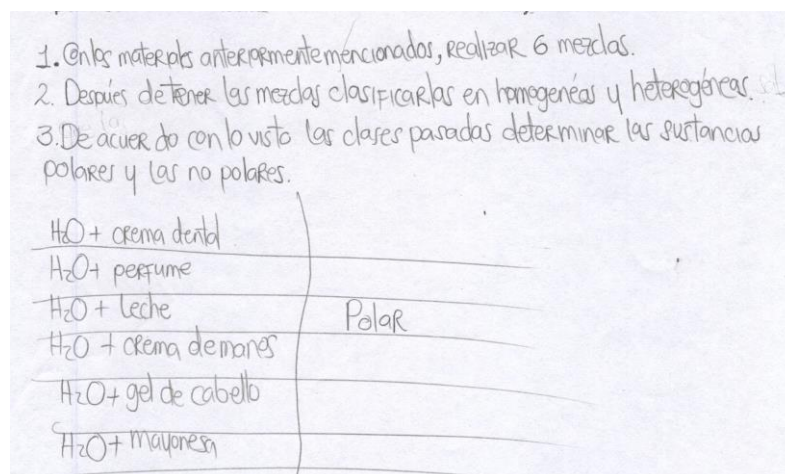 1. Con los materiales anteriormente mencionados, realizar 6 mezclas.
2. Despúes de tener las mezclas clasificarlas en homogenéas y heterogéneas.
3. De acuer do con lo visto las clases pasadas determinar las sustancias
polares y las no polares.
H2O + crema dental
H2O + perfume
H2O + leche
Polar
H2O + crema de manos
H2O + gel de cabello
H2O + mayonesa